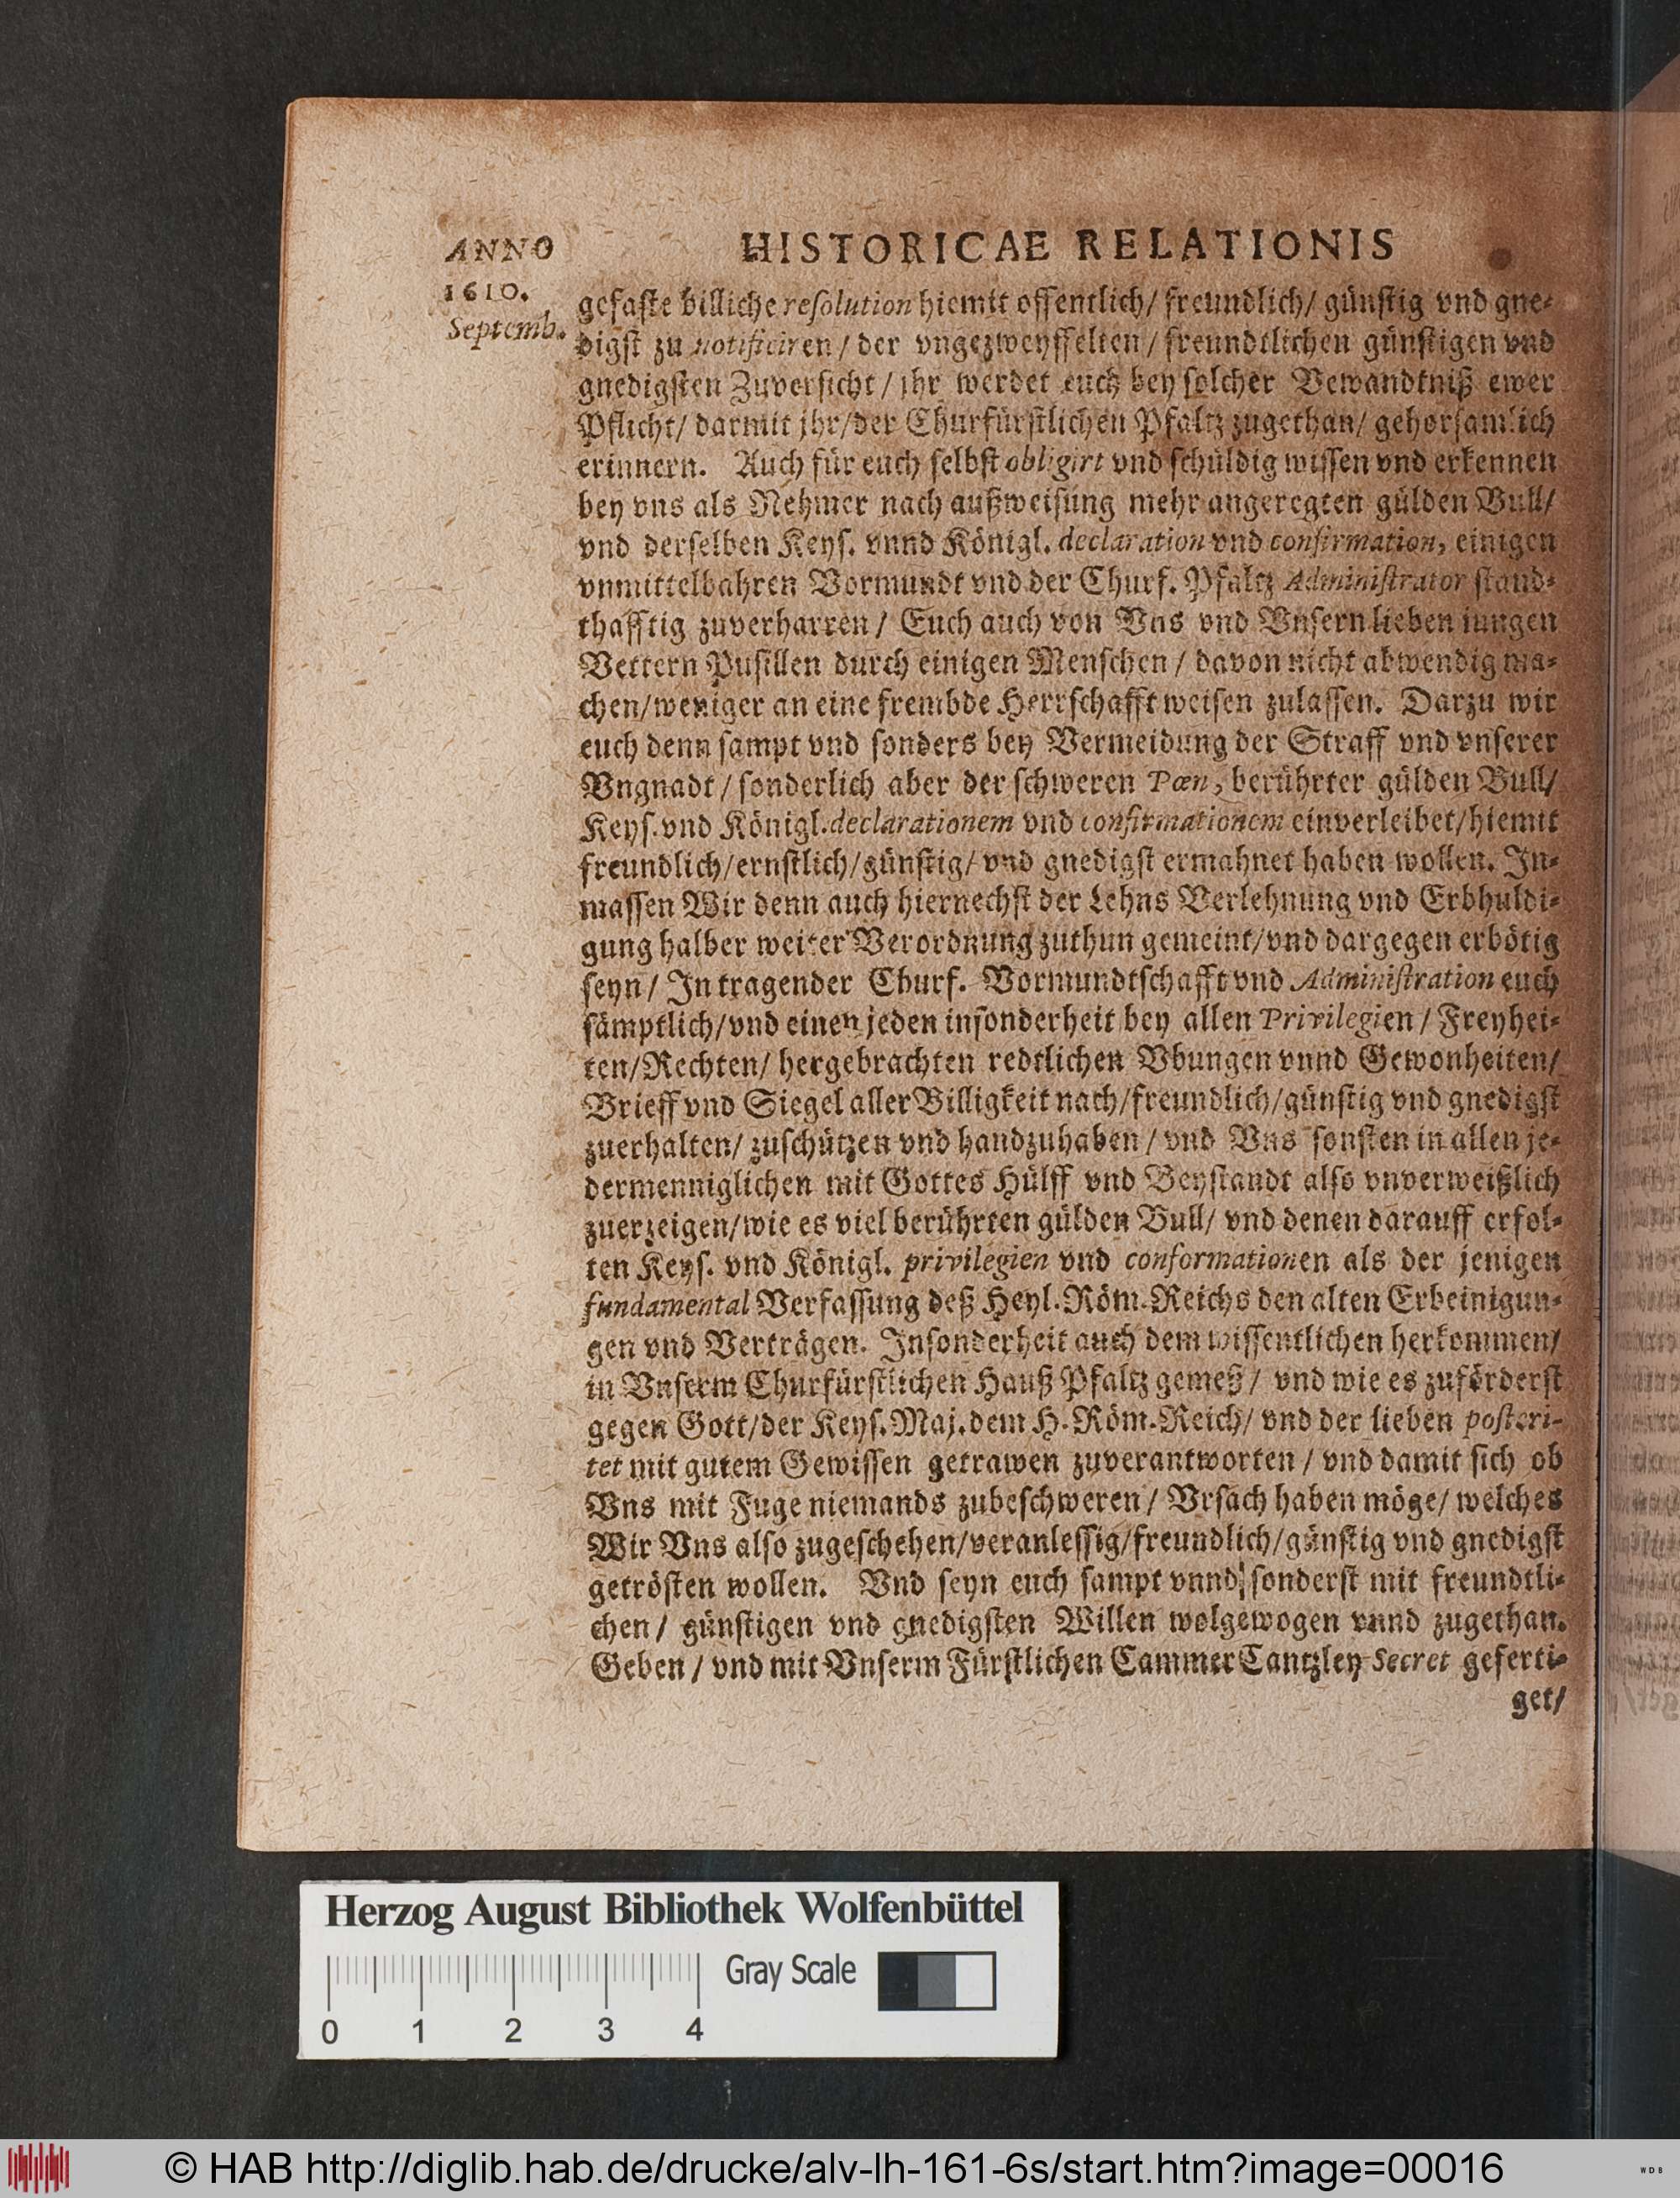 ANNO
1610.
Septemb.
HISTORICAE RELATIONIS
gefaste billiche resolution hiemit offentlich/ freundlich/ günstig vnd gne-
digst zu notificiren / der vngezweyffelten / freundtlichen günstigen vnd
gnedigsten Zuversicht / jhr werdet euch bey solcher Bewandtniß ewer
Pflicht/ darmit jhr/der Churfürstlichen Pfaltz zugethan/ gehorsamlich
erinnern. Auch für euch selbst obligirt vnd schuldig wissen vnd erkennen
bey vns als Nehmer nach außweisung mehr angeregten gülden Bull/
vnd derselben Keys. vnnd Königl. declaration vnd confirmation, einigen
vnmittelbahren Vormundt vnd der Churf. Pfaltz Administrator stand-
thafftig zuverharren / Euch auch von Vns vnd Vnsern lieben jungen
Vettern Pusillen durch einigen Menschen / davon nicht abwendig ma-
chen/weniger an eine frembde Herrschafft weisen zulassen. Darzu wir
euch denn sampt vnd sonders bey Vermeidung der Straff vnd vnserer
Vngnadt / sonderlich aber der schweren Pœn, berührter gülden Bull/
Keys. vnd Königl. declarationem vnd confirmationem einverleibet/hiemit
freundlich/ernstlich/günstig/ vnd gnedigst ermahnet haben wollen. In-
massen Wir denn auch hiernechst der Lehns Verlehnung vnd Erbhuldi-
gung halber weiter Verordnung zuthun gemeint/vnd dargegen erbötig
seyn / In tragender Churf. Vormundtschafft vnd Administration euch
sämptlich/vnd einen jeden insonderheit bey allen Privilegien / Freyhei-
ten/Rechten/ hergebrachten redtlichen Vbungen vnnd Gewonheiten/
Brieff vnd Siegel aller Billigkeit nach/freundlich/günstig vnd gnedigst
zuerhalten/ zuschützen vnd handzuhaben / vnd Vns sonsten in allen je-
dermenniglichen mit Gottes Hülff vnd Beystandt also vnverweißlich
zuerzeigen/wie es viel berührten gülden Bull/ vnd denen darauff erfol-
ten Keys. vnd Königl. privilegien vnd conformationen als der jenigen
fundamental Verfassung deß Heyl. Röm. Reichs den alten Erbeinigun-
gen vnd Verträgen. Insonderheit auch dem wissentlichen herkommen/
in Vnserm Churfürstlichen Hauß Pfaltz gemeß / vnd wie es zuförderst
gegen Gott/der Keys. Maj. dem H. Röm. Reich/ vnd der lieben posteri-
tet mit gutem Gewissen getrawen zuverantworten / vnd damit sich ob
Vns mit Fuge niemands zubeschweren / Vrsach haben möge/ welches
Wir Vns also zugeschehen/veranlessig/freundlich/günstig vnd gnedigst
getrösten wollen. Vnd seyn euch sampt vnnd sonderst mit freundtli-
chen / günstigen vnd gnedigsten Willen wolgewogen vnnd zugethan.
Geben / vnd mit Vnserm Fürstlichen Cammer Cantzley Secret geferti-
get/
Herzog August Bibliothek Wolfenbüttel
Gray Scale
0 1 2 3 4
© HAB http://diglib.hab.de/drucke/alv-lh-161-6s/start.htm?image=00016
WDB